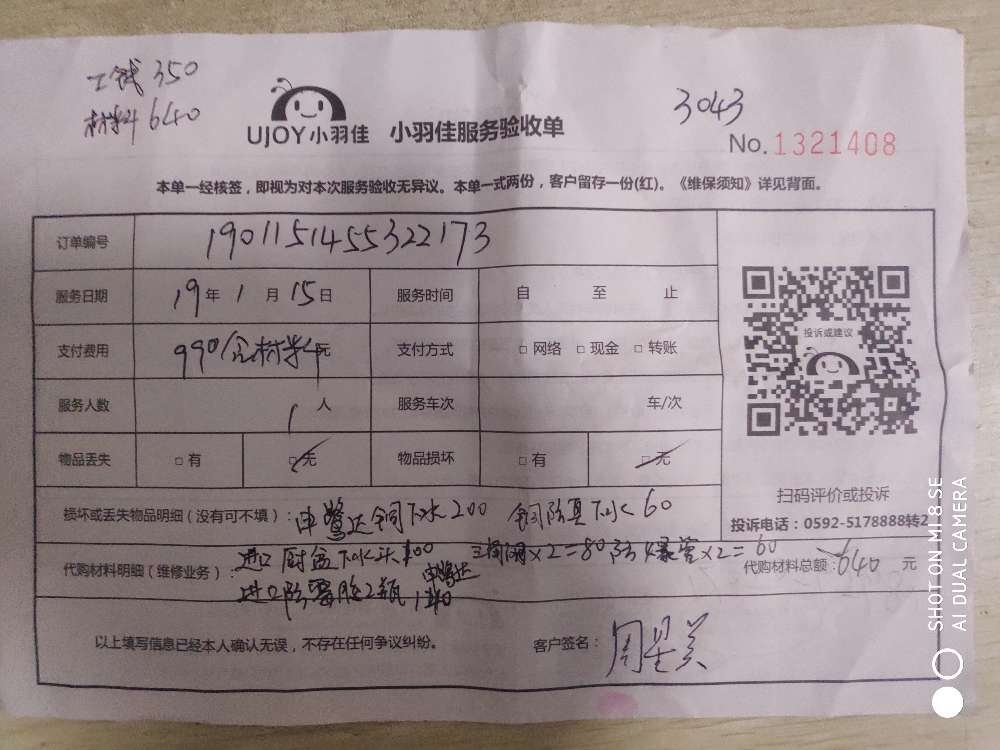 工钱 350
材料 640
3043
UJOY小羽佳 小羽佳服务验收单
No. 1321408
本单一经核签，即视为对本次服务验收无异议。本单一式两份，客户留存一份(红)。《维保须知》详见背面。
订单编号 1901151455322173
服务日期 19 年 1 月 15 日 服务时间 自 至 止
支付费用 990/含材料 元 支付方式 □ 网络 □ 现金 □ 转账
服务人数 1 人 服务车次 车/次
投诉或建议
物品丢失 □ 有 □ 无 物品损坏 □ 有 □ 无
扫码评价或投诉
投诉电话：0592-5178888转2
损坏或丢失物品明细（没有可不填）：申鹭达铜下水200 铜防臭下水60
代购材料明细（维修业务）：进口厨盆下水头100 三角阀×2=80 防爆管×2=60
申鹭达
进口防霉胶2瓶 140
代购材料总额：640 元
以上填写信息已经本人确认无误，不存在任何争议纠纷。 客户签名：周星
SHOT ON MI 8 SE
AI DUAL CAMERA